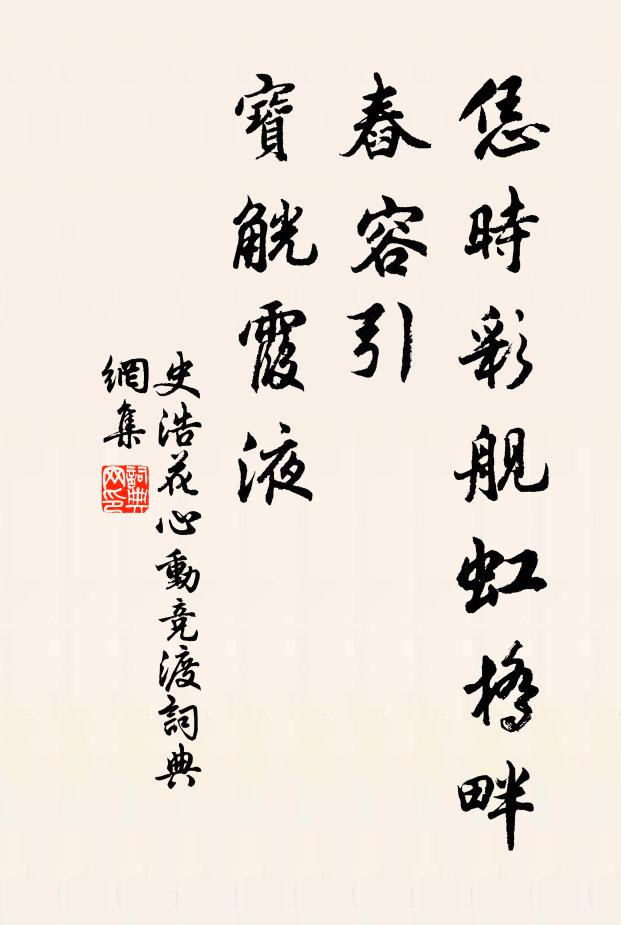 恁時彩舰虹橋畔
舂容引
寶觥霞液
史浩花心動競渡詞典
網集
詞典网印